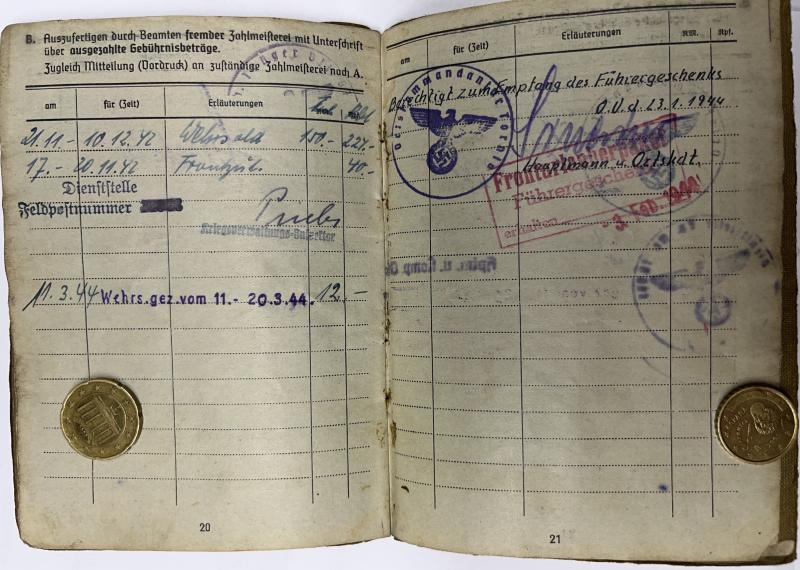 B. Auszufertigen durch Beamten fremder Zahlmeisterei mit Unterschrift
über ausgezahlte Gebührnisbeträge.
Zugleich Mitteilung (Vordruck) an zuständige Zahlmeisterei nach A.
am für (Zeit) Erläuterungen
21.11.- 10.12.42 Wehrsold 150.-
17.- 20.11.42 40.-
Dienststelle
Feldpostnummer
Kriegsverwaltungs-Inspektor
11.3.44 Wehrs.gez.vom 11.- 20.3.44. 12.-
20
am für (Zeit) Erläuterungen RM. Rpf.
Berechtigt zum Empfang des Führergeschenks
O.U.d. 23.1.1944
Hauptmann u. Ortskdt.
Ortskommandantur
Fronturlauber
Führergeschenk
erhalten 3. Feb. 1944
21